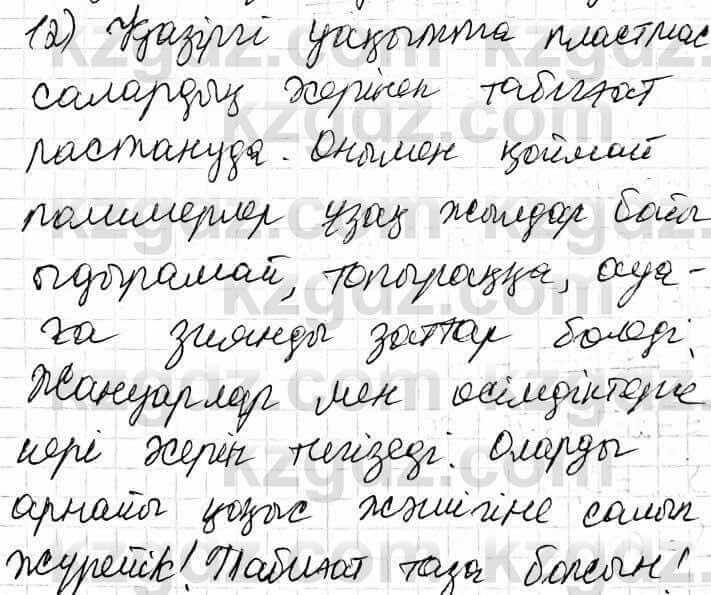 12) Қазіргі уақытта пластмас
салардың әсерінен табиғат
ластануда. Онымен қоймай
полимерлер ұзақ жылдар бойы
ыдырамай, топыраққа, ауа-
ға зиянды заттар бөледі.
Жануарлар мен өсімдіктерге
кері әсерін тигізеді. Оларды
арнайы қоқыс жәшігіне салып
жүрейік! Табиғат таза болсын!
kzgdz.com